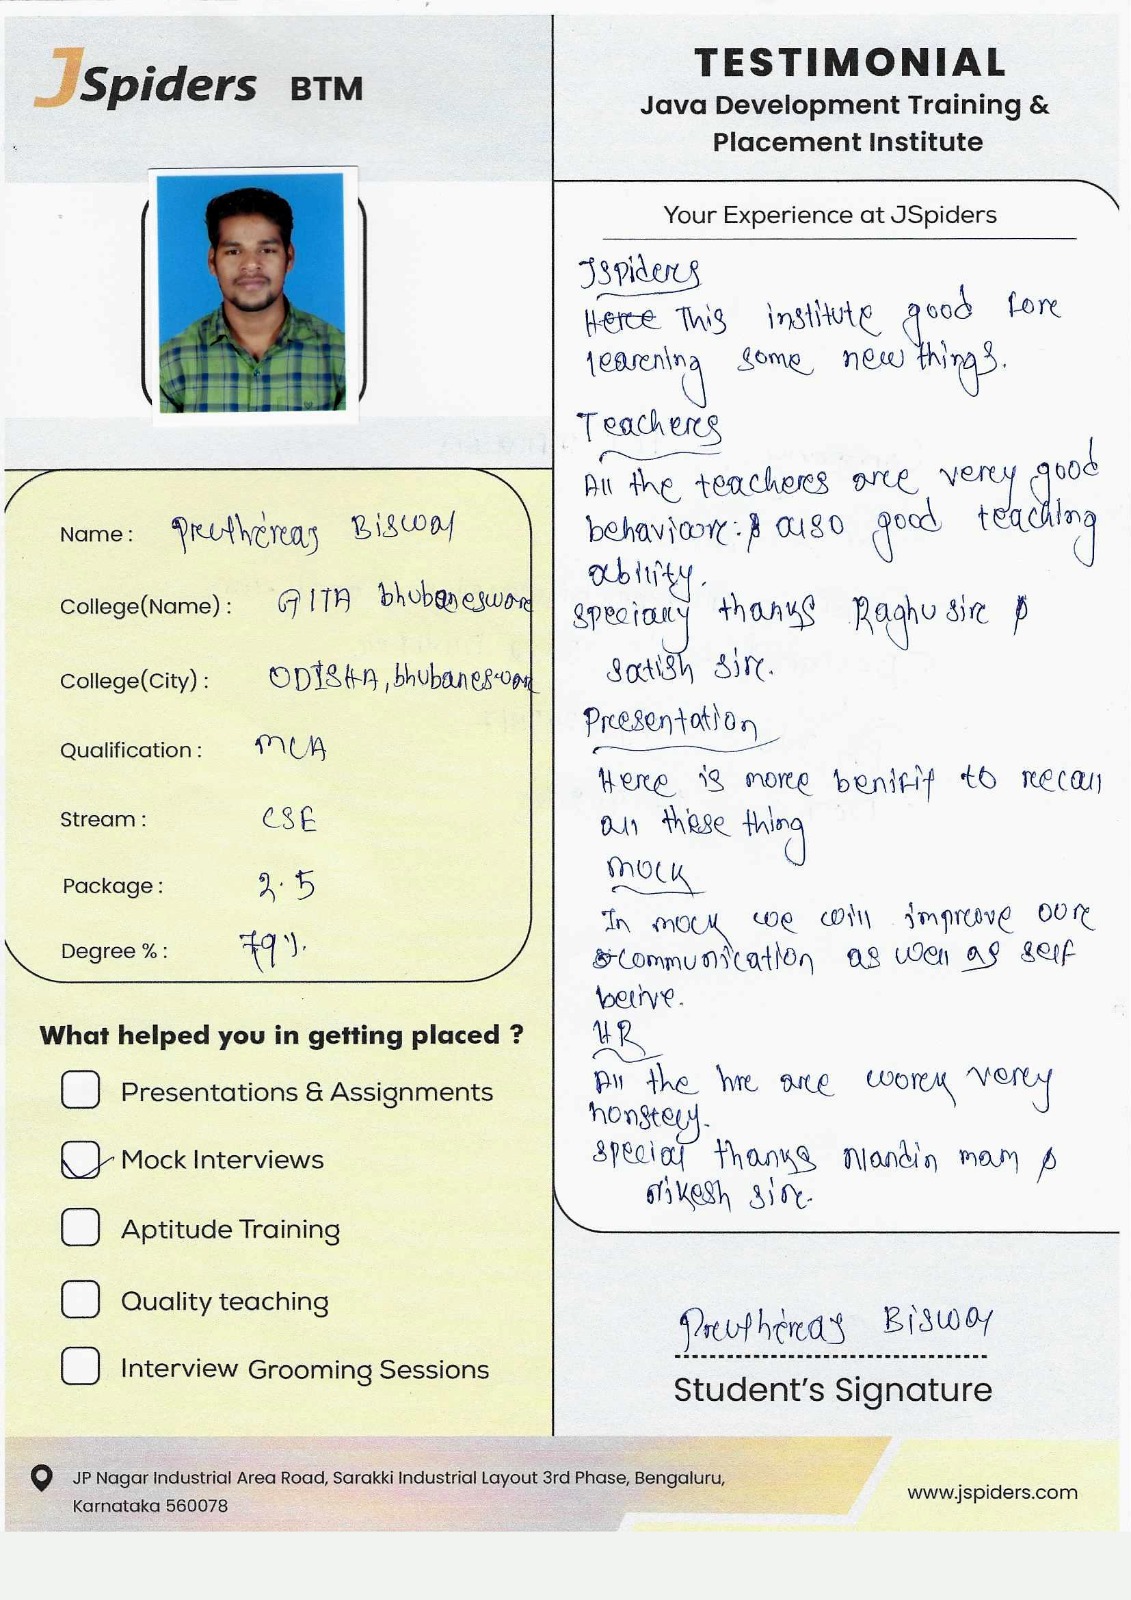 JSpiders BTM
TESTIMONIAL
Java Development Training &
Placement Institute
Name : Preuthereas Biswal
College(Name) : GITA bhubaneswore
College(City) : ODISHA, bhubaneswore
Qualification : MCA
Stream : CSE
Package : 2.5
Degree % : 79%
What helped you in getting placed ?
Presentations & Assignments
Mock Interviews
Aptitude Training
Quality teaching
Interview Grooming Sessions
Your Experience at JSpiders
Jspiders
Herce This institute good fore
learcning some new things.
Teacheres
All the teacheres arce verey good
behavioore. & also good teaching
ability.
specially thanks Raghu sire &
satish sire.
Preesentation
Herce is morce benifit to recall
all these thing
mock
In mock we will improve oore
communication as well as self
belive.
HR
All the hre arce worck verey
honstely.
special thanks Nandin mam &
Nikesh sire.
Preuthereas Biswal
Student's Signature
JP Nagar Industrial Area Road, Sarakki Industrial Layout 3rd Phase, Bengaluru,
Karnataka 560078
www.jspiders.com